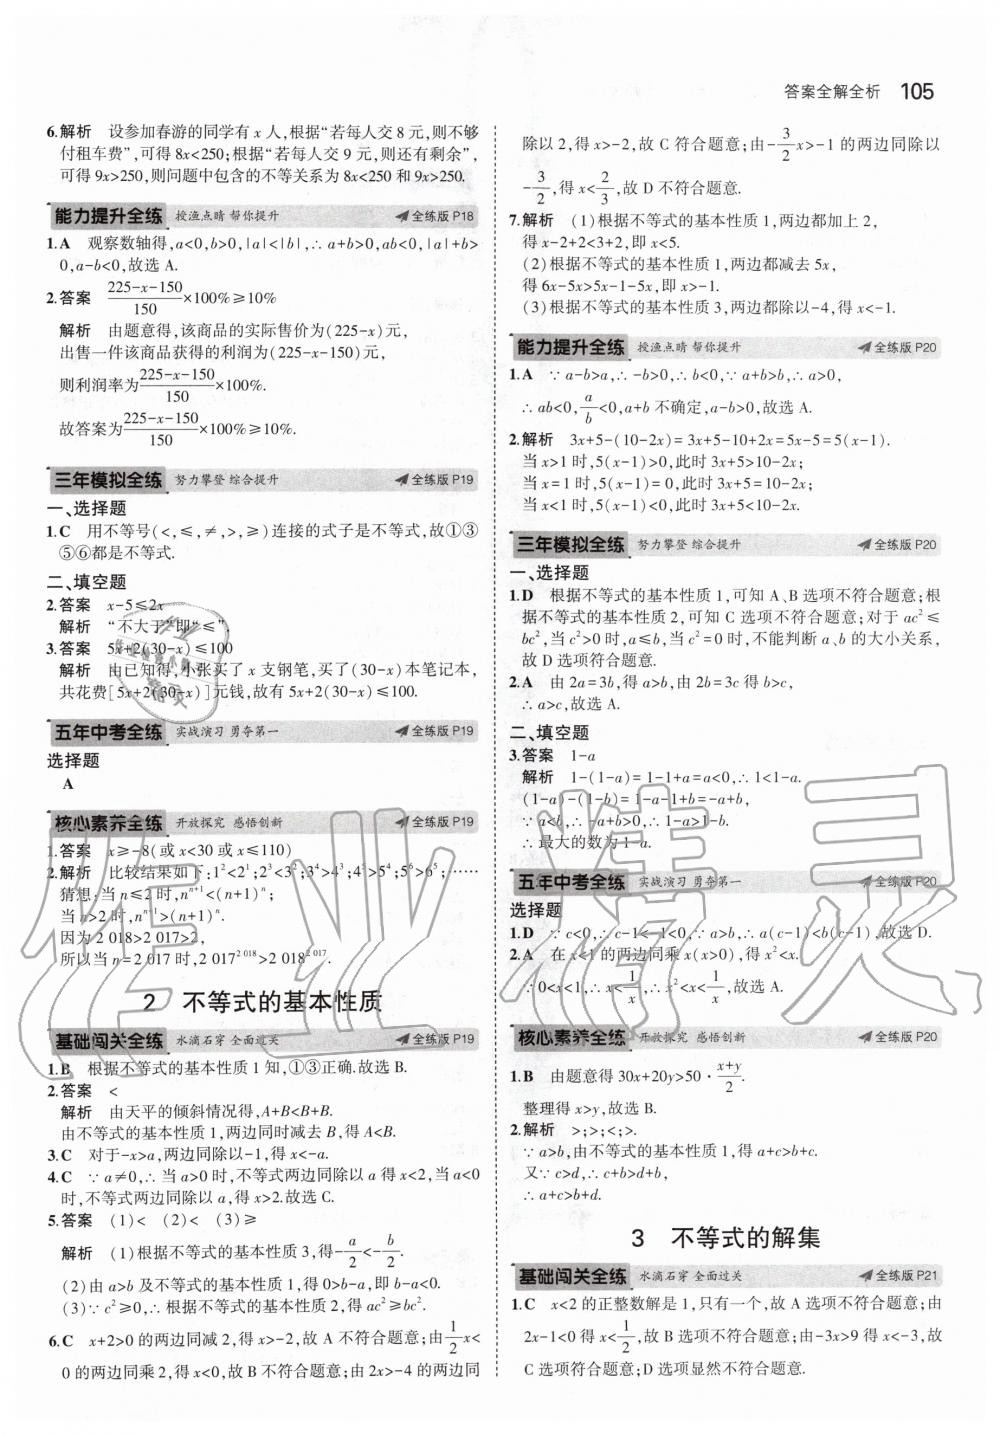 答案全解全析 105
6.解析 设参加春游的同学有 x 人,根据“若每人交 8 元,则不够
付租车费”,可得 8x<250;根据“若每人交 9 元,则还有剩余”,
可得 9x>250,则问题中包含的不等关系为 8x<250 和 9x>250.
能力提升全练 授渔点睛 帮你提升 全练版 P18
1.A 观察数轴得,a<0,b>0,|a|<|b|,∴a+b>0,ab<0,|a|+b>
0,a-b<0,故选 A.
2.答案 (225-x-150)/150×100%≥10%
解析 由题意得,该商品的实际售价为(225-x)元,
出售一件该商品获得的利润为(225-x-150)元,
则利润率为(225-x-150)/150×100%,
故答案为(225-x-150)/150×100%≥10%.
三年模拟全练 努力攀登 综合提升 全练版 P19
一、选择题
1.C 用不等号(<,≤,≠,>,≥)连接的式子是不等式,故①③
⑤⑥都是不等式.
二、填空题
2.答案 x-5≤2x
解析 “不大于”即“≤”.
3.答案 5x+2(30-x)≤100
解析 由已知得,小张买了 x 支钢笔,买了(30-x)本笔记本,
共花费[5x+2(30-x)]元钱,故有 5x+2(30-x)≤100.
五年中考全练 实战演习 勇夺第一 全练版 P19
选择题
A
核心素养全练 开放探究 感悟创新 全练版 P19
1.答案 x≥-8(或 x<30 或 x≤110)
2.解析 比较结果如下:1²<2¹;2³<3²;3⁴>4³;4⁵>5⁴;5⁶>6⁵;……
猜想:当 n≤2 时,nⁿ⁺¹<(n+1)ⁿ;
当 n>2 时,nⁿ⁺¹>(n+1)ⁿ.
因为 2 018>2 017>2,
所以当 n=2 017 时,2 017²⁰¹⁸>2 018²⁰¹⁷.
2 不等式的基本性质
基础闯关全练 水滴石穿 全面过关 全练版 P19
1.B 根据不等式的基本性质 1 知,①③正确.故选 B.
2.答案 <
解析 由天平的倾斜情况得,A+B<B+B.
由不等式的基本性质 1,两边同时减去 B,得 A<B.
3.C 对于-x>a,两边同除以-1,得 x<-a.
4.C ∵a≠0,∴当 a>0 时,不等式两边同除以 a 得 x<2,当 a<0
时,不等式两边同除以 a,得 x>2.故选 C.
5.答案 (1)< (2)< (3)≥
解析 (1)根据不等式的基本性质 3,得-a/2<-b/2.
(2)由 a>b 及不等式的基本性质 1,得 0>b-a,即 b-a<0.
(3)∵c²≥0,∴根据不等式的基本性质 2,得 ac²≥bc².
6.C x+2>0 的两边同减 2,得 x>-2,故 A 不符合题意;由1/2x<
0 的两边同乘 2,得 x<0,故 B 不符合题意;由 2x>-4 的两边同
除以 2,得 x>-2,故 C 符合题意;由-3/2x>-1 的两边同除以
-3/2,得 x<2/3,故 D 不符合题意.
7.解析 (1)根据不等式的基本性质 1,两边都加上 2,
得 x-2+2<3+2,即 x<5.
(2)根据不等式的基本性质 1,两边都减去 5x,
得 6x-5x>5x-1-5x,即 x>-1.
(3)根据不等式的基本性质 3,两边都除以-4,得 x<-1.
能力提升全练 授渔点睛 帮你提升 全练版 P20
1.A ∵a-b>a,∴-b>0,∴b<0,∵a+b>b,∴a>0,
∴ab<0,a/b<0,a+b 不确定,a-b>0,故选 A.
2.解析 3x+5-(10-2x)=3x+5-10+2x=5x-5=5(x-1).
当 x>1 时,5(x-1)>0,此时 3x+5>10-2x;
当 x=1 时,5(x-1)=0,此时 3x+5=10-2x;
当 x<1 时,5(x-1)<0,此时 3x+5<10-2x.
三年模拟全练 努力攀登 综合提升 全练版 P20
一、选择题
1.D 根据不等式的基本性质 1,可知 A、B 选项不符合题意;根
据不等式的基本性质 2,可知 C 选项不符合题意;对于 ac²≤
bc²,当 c²>0 时,a≤b,当 c²=0 时,不能判断 a、b 的大小关系,
故 D 选项符合题意.
2.A 由 2a=3b,得 a>b,由 2b=3c 得 b>c,
∴a>c,故选 A.
二、填空题
3.答案 1-a
解析 1-(1-a)=1-1+a=a<0,∴1<1-a.
(1-a)-(1-b)=1-a-1+b=-a+b,
∵a<b,∴-a+b>0,∴1-a>1-b.
∴最大的数为 1-a.
五年中考全练 实战演习 勇夺第一 全练版 P20
选择题
1.D ∵c<0,∴c-1<-1<0,∵a>b,∴a(c-1)<b(c-1),故选 D.
2.A 在 x<1 的两边同乘 x(x>0),得 x²<x.
∵0<x<1,∴x<1/x,∴x²<x<1/x.
核心素养全练 开放探究 感悟创新 全练版 P20
1.B 由题意得 30x+20y>50·(x+y)/2.
整理得 x>y,故选 B.
2.解析 >;>;<;>.
∵a>b,由不等式的基本性质 1,得 a+c>b+c.
又∵c>d,∴c+b>d+b,
∴a+c>b+d.
3 不等式的解集
基础闯关全练 水滴石穿 全面过关 全练版 P21
1.C x<2 的正整数解是 1,只有一个,故 A 选项不符合题意;由
2x-1<0 得 x<1/2,故 B 选项不符合题意;由-3x>9 得 x<-3,故
C 选项符合题意;D 选项显然不符合题意.
作业精灵